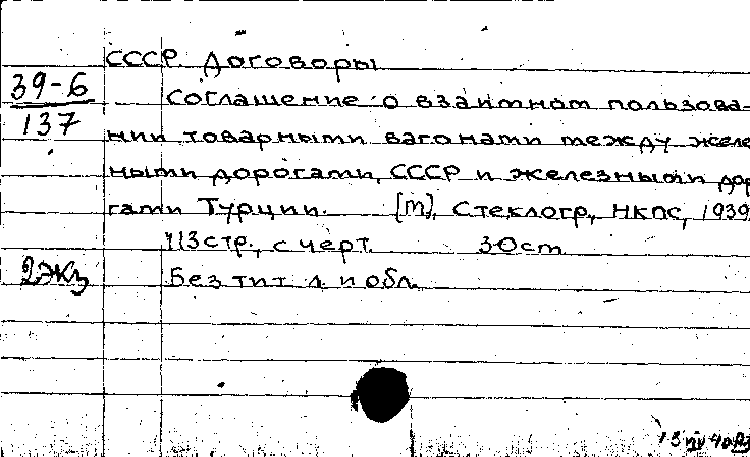 СССР Договоры
39-6
137
Соглашение о взаимном пользова-
нии товарными вагонами между желез
ными дорогами СССР и железными дор
гами Турции. [М], Стеклогр, НКПС, 1939
113 стр., с черт. 30 см
2 экз
Без тит. л. и обл.